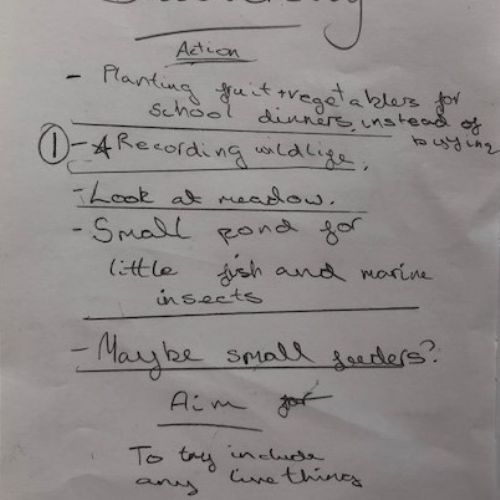 Action
- Planting fruit + vegetables for
school dinners, instead of
buying
① - ★ Recording wildlife.
- Look at meadow.
- Small pond for
little fish and marine
insects
- Maybe small feeders?
Aim for
To try include
any live thing